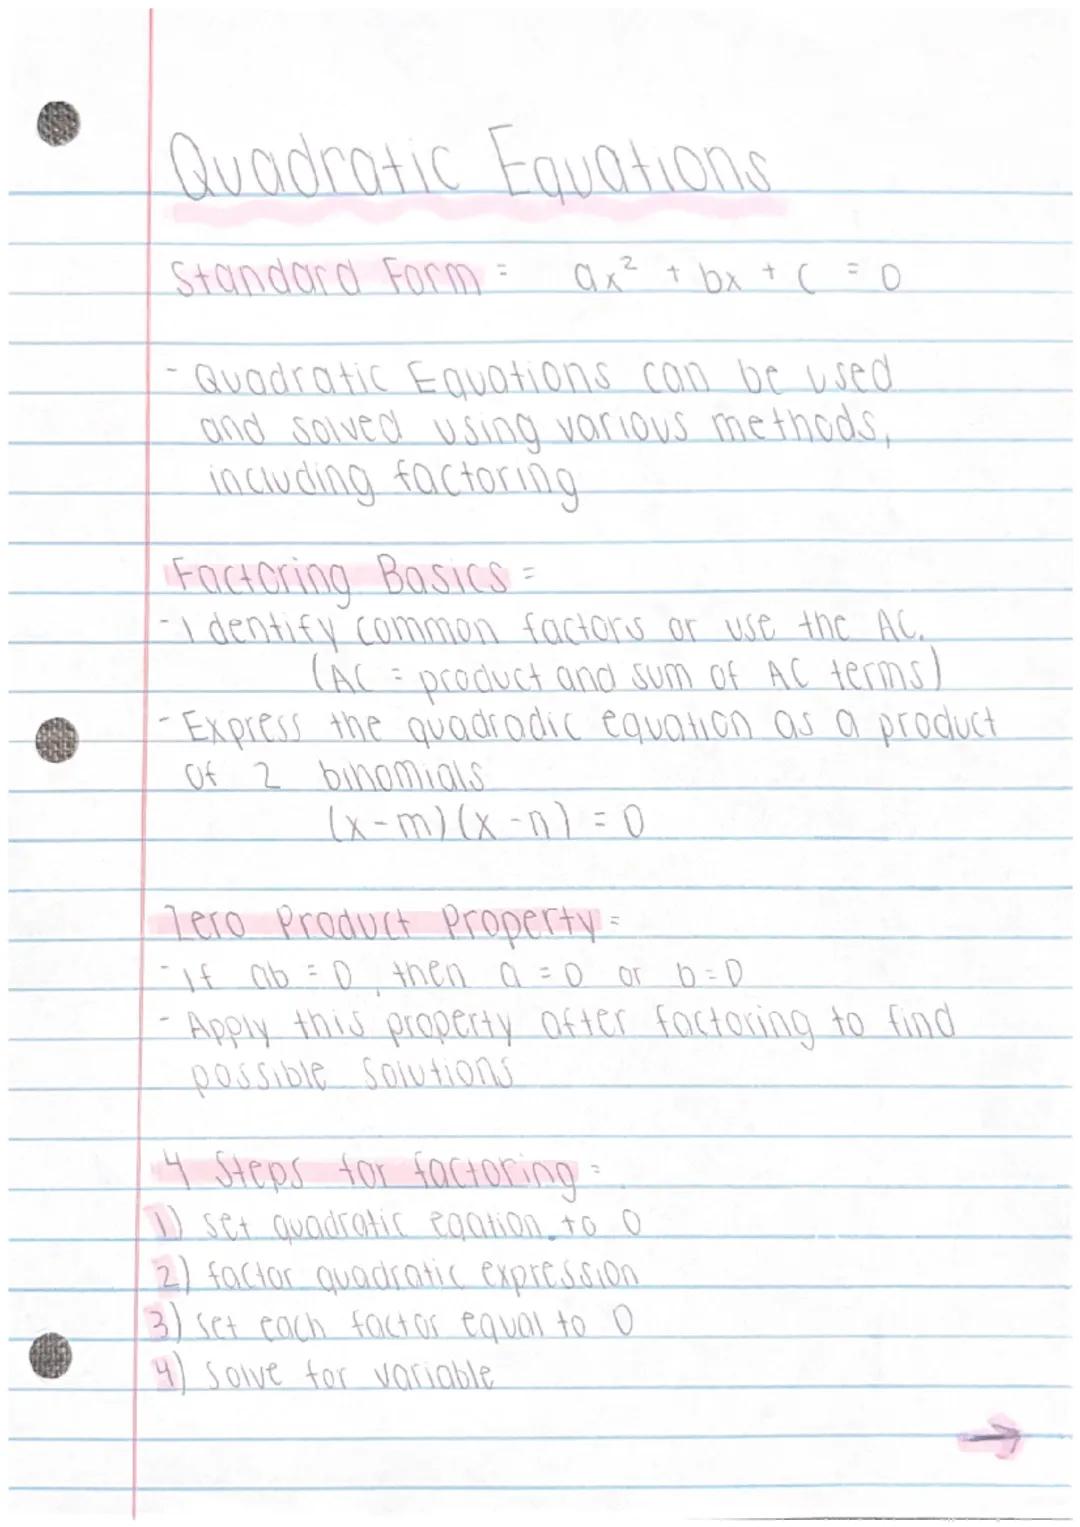 Quadratic Equations
Standard Form = ax² + bx + c = 0
- Quadratic Equations can be used
and solved using various methods,
including factoring
Factoring Basics =
- Identify common factors or use the AC.
(AC = product and sum of AC terms)
- Express the quadradic equation as a product
of 2 binomials
(x-m)(x-n) = 0
Zero Product Property =
- If ab = 0, then a = 0 or b = 0
- Apply this property after factoring to find
possible solutions
4 Steps for factoring =
1) set quadratic eqation to 0
2) factor quadratic expression
3) set each factor equal to 0
4) Solve for variable
→